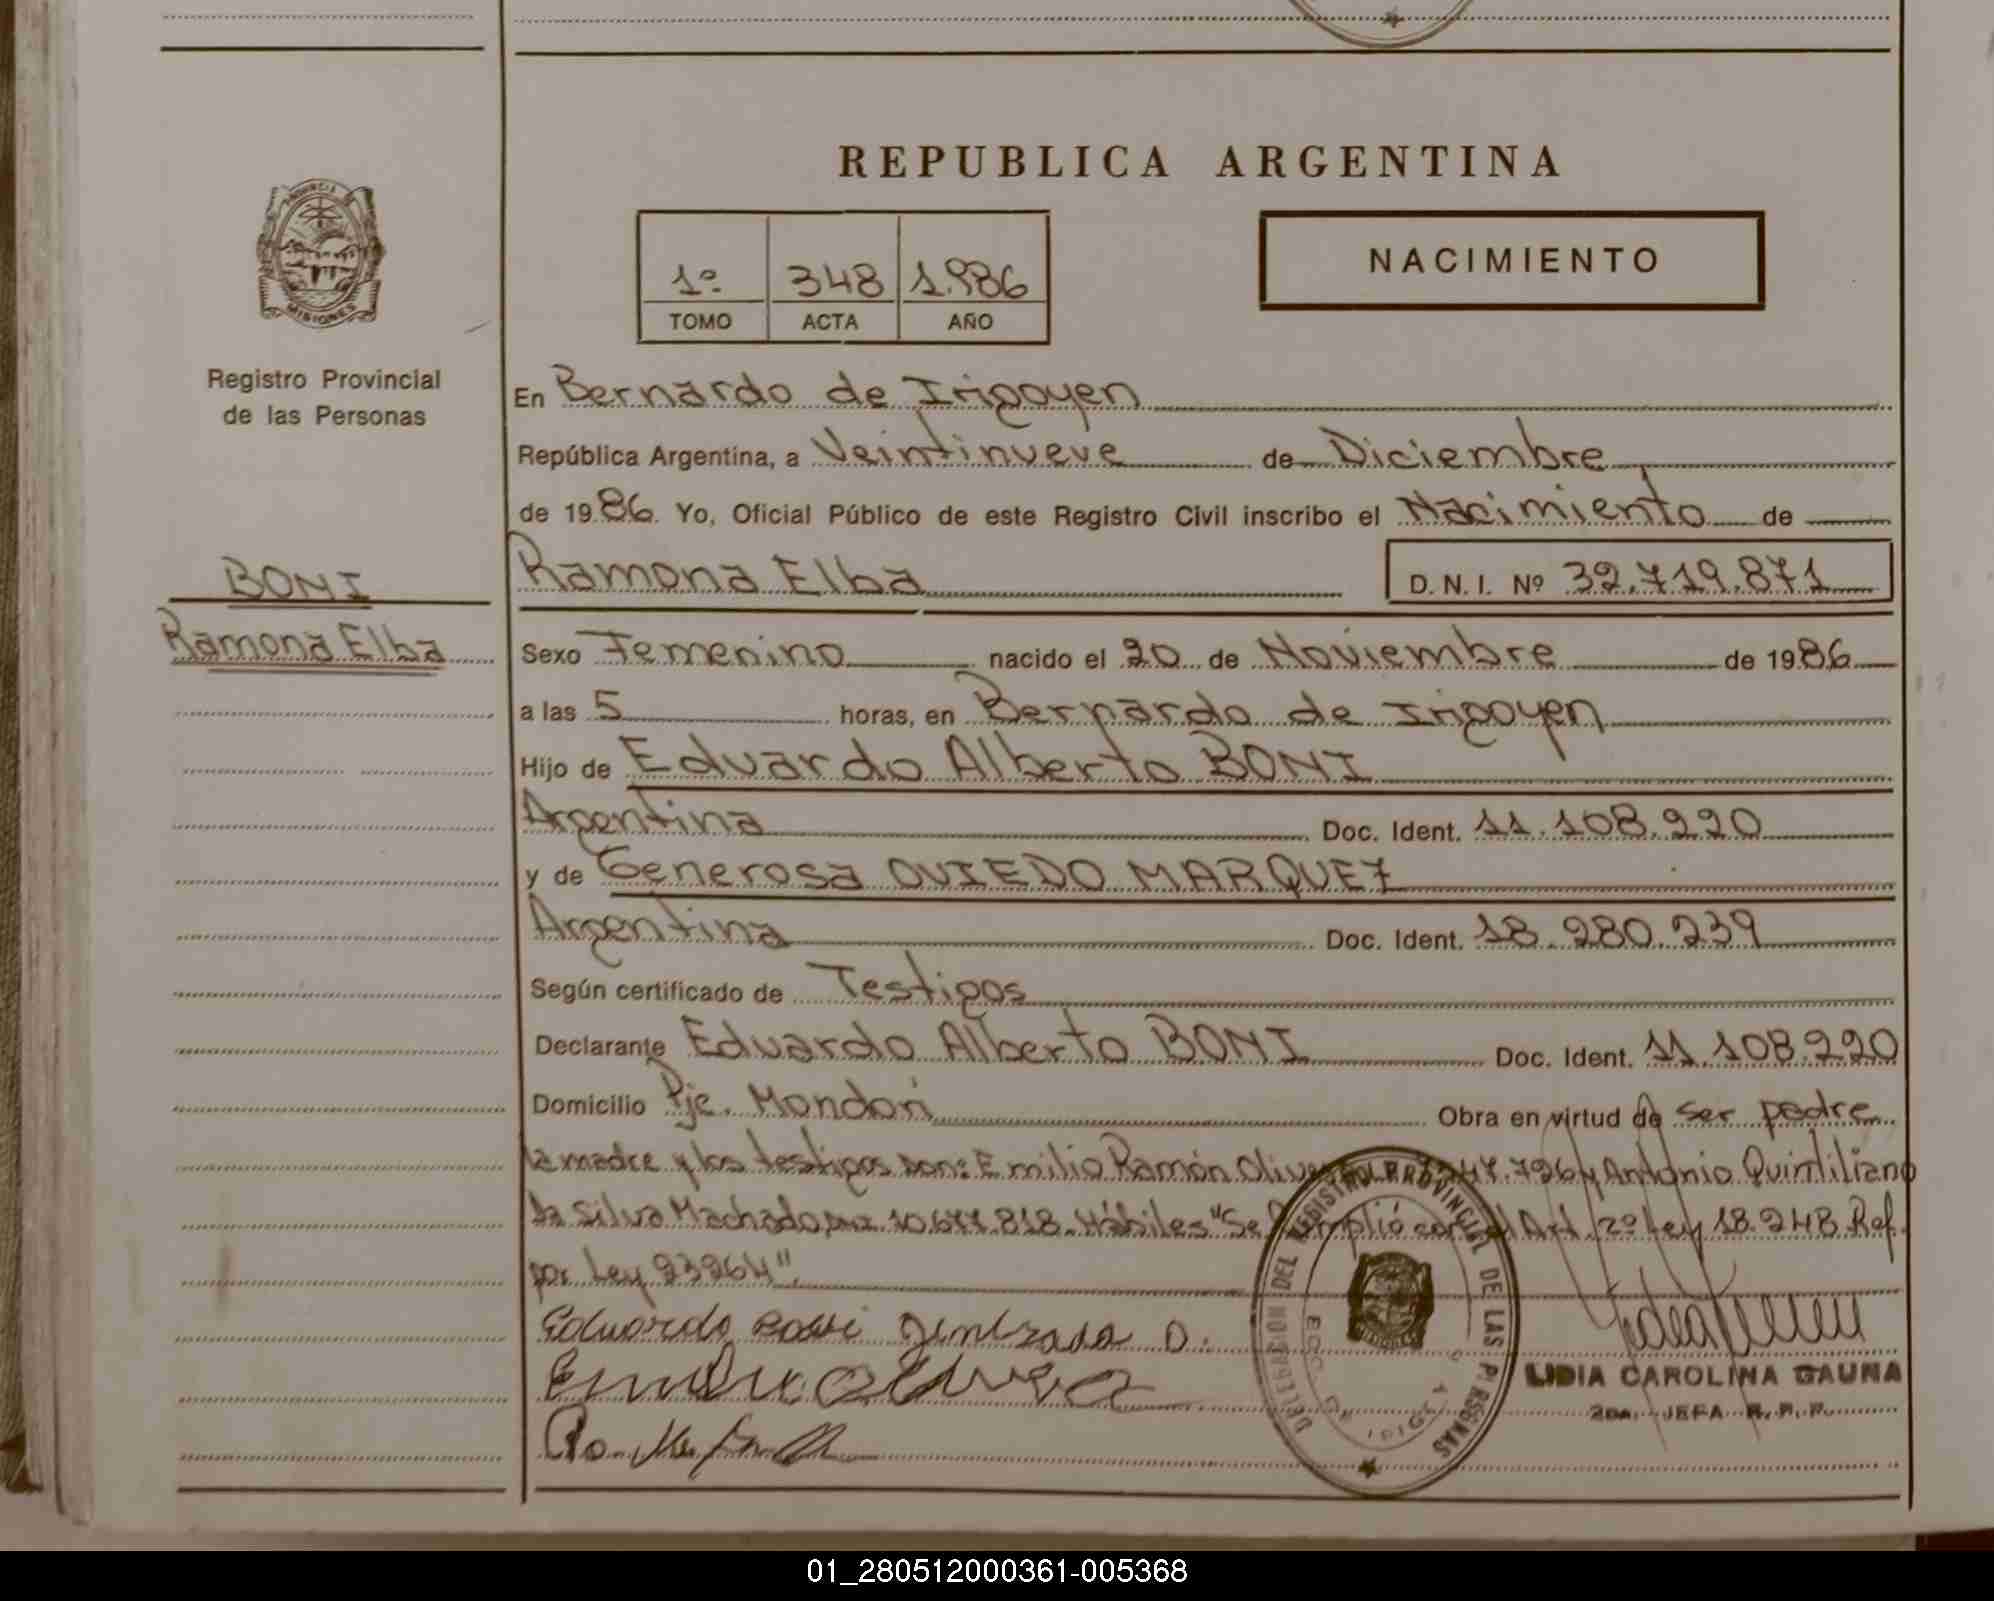 REPUBLICA ARGENTINA
PROVINCIA
MISIONES
Registro Provincial
de las Personas
1º 348 1.986
TOMO ACTA AÑO
NACIMIENTO
En Bernardo de Irigoyen
República Argentina, a Veintinueve de Diciembre
de 1986. Yo, Oficial Público de este Registro Civil inscribo el Nacimiento de
BONI
Ramona Elba
Ramona Elba D. N. I. Nº 32.719.871
Sexo Femenino nacido el 20 de Noviembre de 1986
a las 5 horas, en Bernardo de Irigoyen
Hijo de Eduardo Alberto BONI
Argentina Doc. Ident. 11.108.220
y de Generosa OVIEDO MARQUEZ
Argentina Doc. Ident. 18.280.239
Según certificado de Testigos
Declarante Eduardo Alberto BONI Doc. Ident. 11.108.220
Domicilio Pje. Mondorí Obra en virtud de ser padre
la madre y los testigos son: Emilio Ramón 247.796 y Antonio Quintiliano
Da Silva Machado 10.677.818. Hábiles "Se cumplió con el Art. 2º Ley 18.248 Ref.
por Ley 23264".
Eduardo Boni
DELEGACION DEL REGISTRO PROVINCIAL DE LAS PERSONAS
LIDIA CAROLINA GAUNA
2da. JEFA R. P. P.
01_280512000361-005368